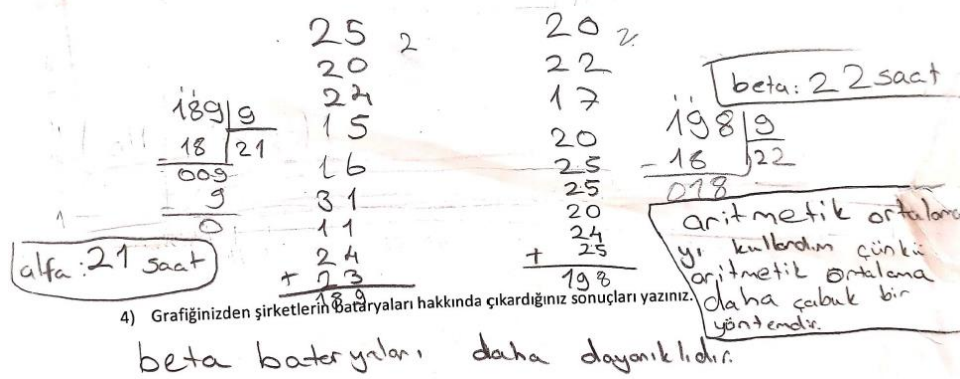 25 2
20
24
15
16
31
11
24
+ 23
189
189 9
- 18 21
009
9
0
alfa: 21 saat
20 2
22
17
20
25
25
20
24
+ 25
198
beta: 22 saat
198 9
- 18 22
018
aritmetik ortalama
yı kullandım çünkü
aritmetik ortalama
daha çabuk bir
yöntemdir.
4) Grafiğinizden şirketlerin bataryaları hakkında çıkardığınız sonuçları yazınız.
beta bateryaları daha dayanıklıdır.